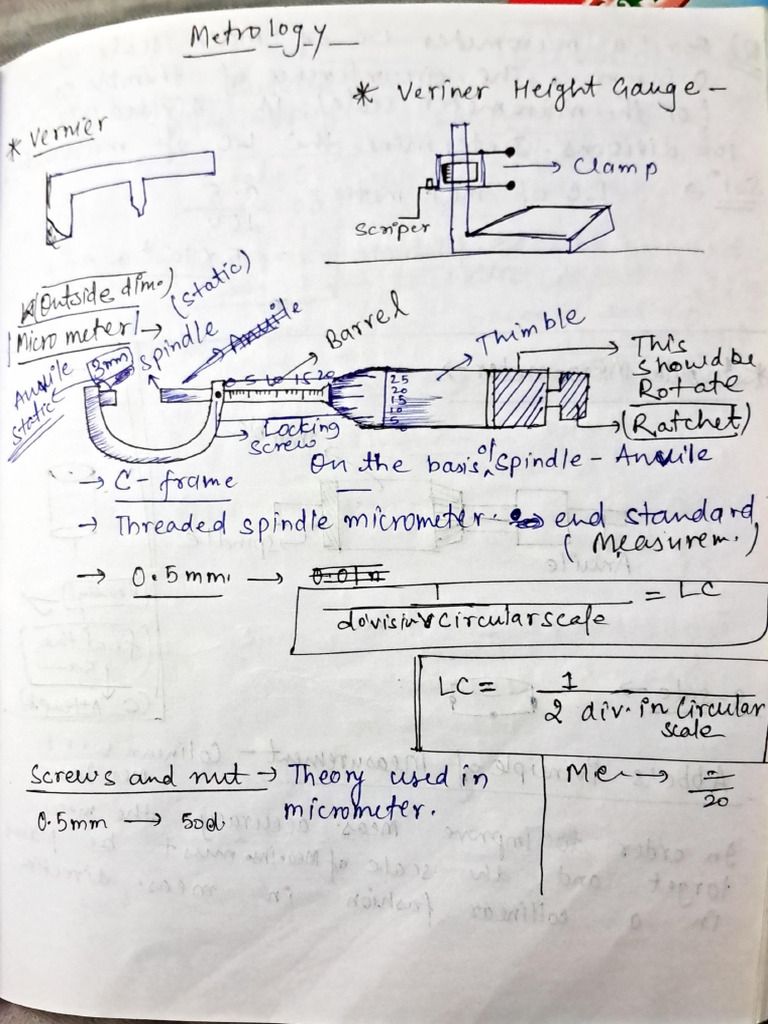 Metrology
* Vernier
* Veriner Height Gauge -
Clamp
Scriper
(Outside dim.)
(static)
Micrometer →
3mm
spindle
Anvile
Barrel
Thimble
This
should be
Rotate
(Ratchet)
Anvile
static
0 5 10 15 20
25
20
15
10
5
0
Locking
screw
On the basis of Spindle - Anvile
→ C-frame
→ Threaded spindle micrometer. → end standard
(Measurem.)
→ 0.5mm. →
1 / division circular scale = LC
LC = 1 / 2 div. in Circular
scale
Screws and nut → Theory used in
micrometer.
0.5mm → 50d
Me →
20